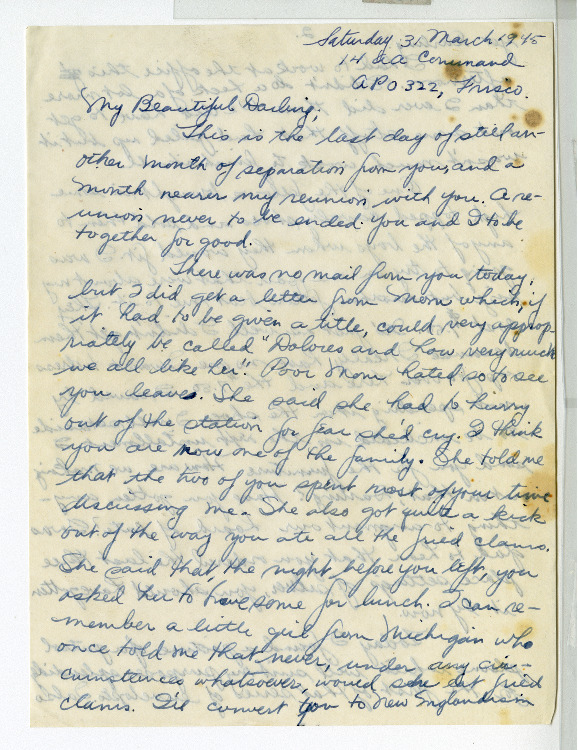 Saturday 31 March 1945
14 AA Command
APO 322, Frisco.
My Beautiful Darling;
This is the last day of still an-
other month of separation from you, and a
month nearer my reunion with you. A re-
union never to be ended. You and I to be
together for good.
There was no mail from you today,
but I did get a letter from Mom which, if
it had to be given a title, could very approp-
riately be called "Dolores and how very much
we all like her". Poor Mom hated so to see
you leave. She said she had to hurry
out of the station for fear she'd cry. I think
you are now one of the family. She told me
that the two of you spent most of your time
discussing me. She also got quite a kick
out of the way you ate all the fried clams.
She said that, the night before you left, you
asked her to have some for lunch. I can re-
member a little girl from Michigan who
once told me that never, under any cir-
cumstances whatsoever, would she eat fried
clams. I'll convert you to New Englandism